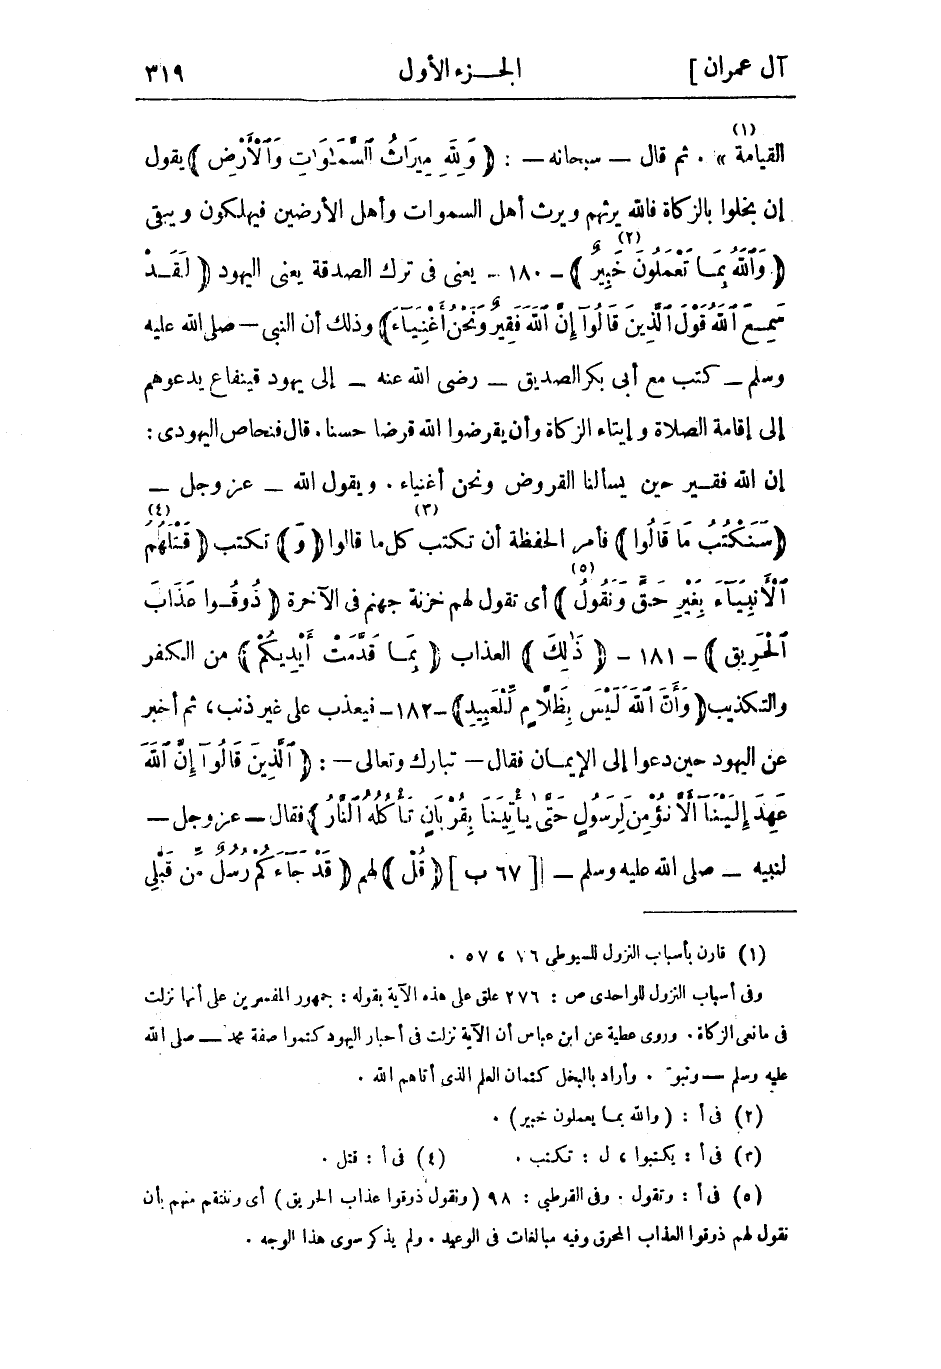 آل عمران] الجــزء الأول ٣١٩
القيامة (١) » . ثم قال — سبحانه — : ﴿ وَلِلَّهِ مِيرَاثُ ٱلسَّمَٰوَٰتِ وَٱلْأَرْضِ ﴾ يقول
إن بخلوا بالزكاة فالله يرثهم ويرث أهل السموات وأهل الأرضين فيهلكون ويبقى
﴿ وَٱللَّهُ بِمَا تَعْمَلُونَ خَبِيرٌ (٢) ﴾ – ١٨٠ – يعنى فى ترك الصدقة يعنى اليهود ﴿ لَقَدْ
سَمِعَ ٱللَّهُ قَوْلَ ٱلَّذِينَ قَالُوٓا إِنَّ ٱللَّهَ فَقِيرٌ وَنَحْنُ أَغْنِيَآءُ ﴾ وذلك أن النبى – صلى الله عليه
وسلم – كتب مع أبى بكر الصديق – رضى الله عنه – إلى يهود قينفاع يدعوهم
إلى إقامة الصلاة وإيتاء الزكاة وأن يقرضوا الله قرضا حسنا . قال فنحاص اليهودى :
إن الله فقــير حين يسألنا القروض ونحن أغنياء . ويقول الله – عز وجل –
﴿ سَنَكْتُبُ مَا قَالُوا ﴾ فأمر الحفظة أن تكتب (٣) كل ما قالوا ﴿ وَ ﴾ تكتب ﴿ قَتْلَهُمُ (٤)
ٱلْأَنۢبِيَآءَ بِغَيْرِ حَقٍّ وَنَقُولُ (٥) ﴾ أى تقول لهم خزنة جهنم فى الآخرة ﴿ ذُوقُـوا عَذَابَ
ٱلْحَرِيقِ ﴾ – ١٨١ – ﴿ ذَٰلِكَ ﴾ العذاب ﴿ بِمَـا قَدَّمَتْ أَيْدِيكُمْ ﴾ من الكفر
والتكذيب ﴿ وَأَنَّ ٱللَّهَ لَيْسَ بِظَلَّامٍ لِّلْعَبِيدِ ﴾ – ١٨٢ – فيعذب على غير ذنب ، ثم أخبر
عن اليهود حين دعوا إلى الإيمـان فقال – تبارك وتعالى – : ﴿ ٱلَّذِينَ قَالُوٓا إِنَّ ٱللَّهَ
عَهِدَ إِلَيْنَآ أَلَّا نُؤْمِنَ لِرَسُولٍ حَتَّىٰ يَأْتِيَنَا بِقُرْبَانٍ تَأْكُلُهُ ٱلنَّارُ ﴾ فقال – عز وجل –
لنبيه – صلى الله عليه وسلم – [ ٦٧ ب ] ﴿ قُلْ ﴾ لهم ﴿ قَدْ جَآءَكُمْ رُسُلٌ مِّن قَبْلِى
(١) قارن بأسباب النزول للسيوطى ٥٧ ، ١٦ .
وفى أسباب النزول للواحدى ص : ٢٧٦ علق على هذه الآية بقوله : جمهور المفسرين على أنها نزلت
فى مانعى الزكاة . وروى عطية عن ابن عباس أن الآية نزلت فى أحبار اليهود كتموا صفة محمد — صلى الله
عليه وسلم — . وأراد بالبخل كتمان العلم الذى أتاهم الله .
(٢) فى أ : ( والله بمـا يعملون خبير ) .
(٣) فى أ : يكتبوا ، ل : تكتب . (٤) فى أ : قتل .
(٥) فى أ : وتقول . وفى القرطبى : ٩٨ ( ونقول ذوقوا عذاب الحريق ) أى وننتقم منهم بأن
نقول لهم ذوقوا العذاب المحرق وفيه مبالغات فى الوعيد . ولم يذكر سوى هذا الوجه .